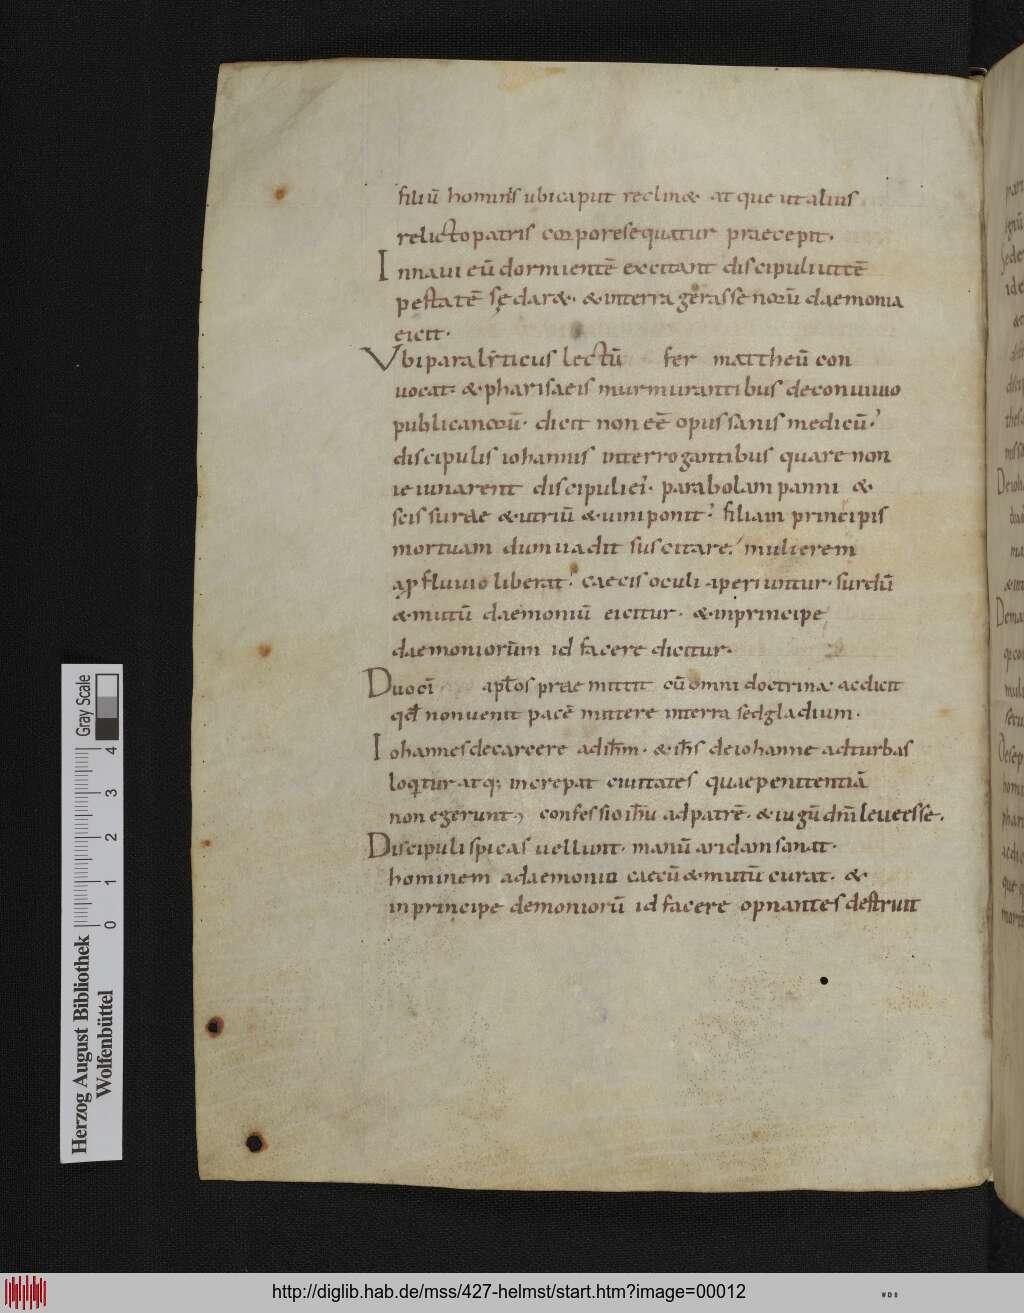 filiū hominis ubi caput reclin& atque ut alius
relicto patris corpore sequatur praecepit.
In naui eū dormientē excitant discipuli ut tē
pestatē sędar&. & in terra gerassenorū daemonia
eicit.
Ubi paralyticus lectū fer mattheū con
uocat: & pharisaeis murmurantibus de conuiuio
publicanorū. dicit non eē opus sanis medicū.
discipulis iohannis interrogantibus quare non
ieiunarent discipuli ei. parabolam panni &
scissurae & utriū & uini ponit. filiam principis
mortuam dum uadit suscitare. mulierem
a ꝓfluuio liberat. caecis oculi aperiuntur. surdū
& mutū daemoniū eicitur. & in principe
daemoniorūm id facere dicitur.
Duoci aptos prae mittit cū omni doctrina ac dicit
qd non uenit pacē mittere in terra sed gladium.
Iohannes de carcere ad ihm. & ihs de iohanne ad turbas
loqtur atq; increpat ciuitates quae penitentiā
non egerunt, confessio ihu ad patrē. & iugū dni leue esse.
Discipuli spicas uellunt. manū aridam sanat.
hominem a daemonio caecū & mutū curat. &
in principe demoniorū id facere opinantes destruit
Herzog August Bibliothek
Wolfenbüttel
Gray Scale
0 1 2 3 4
http://diglib.hab.de/mss/427-helmst/start.htm?image=00012